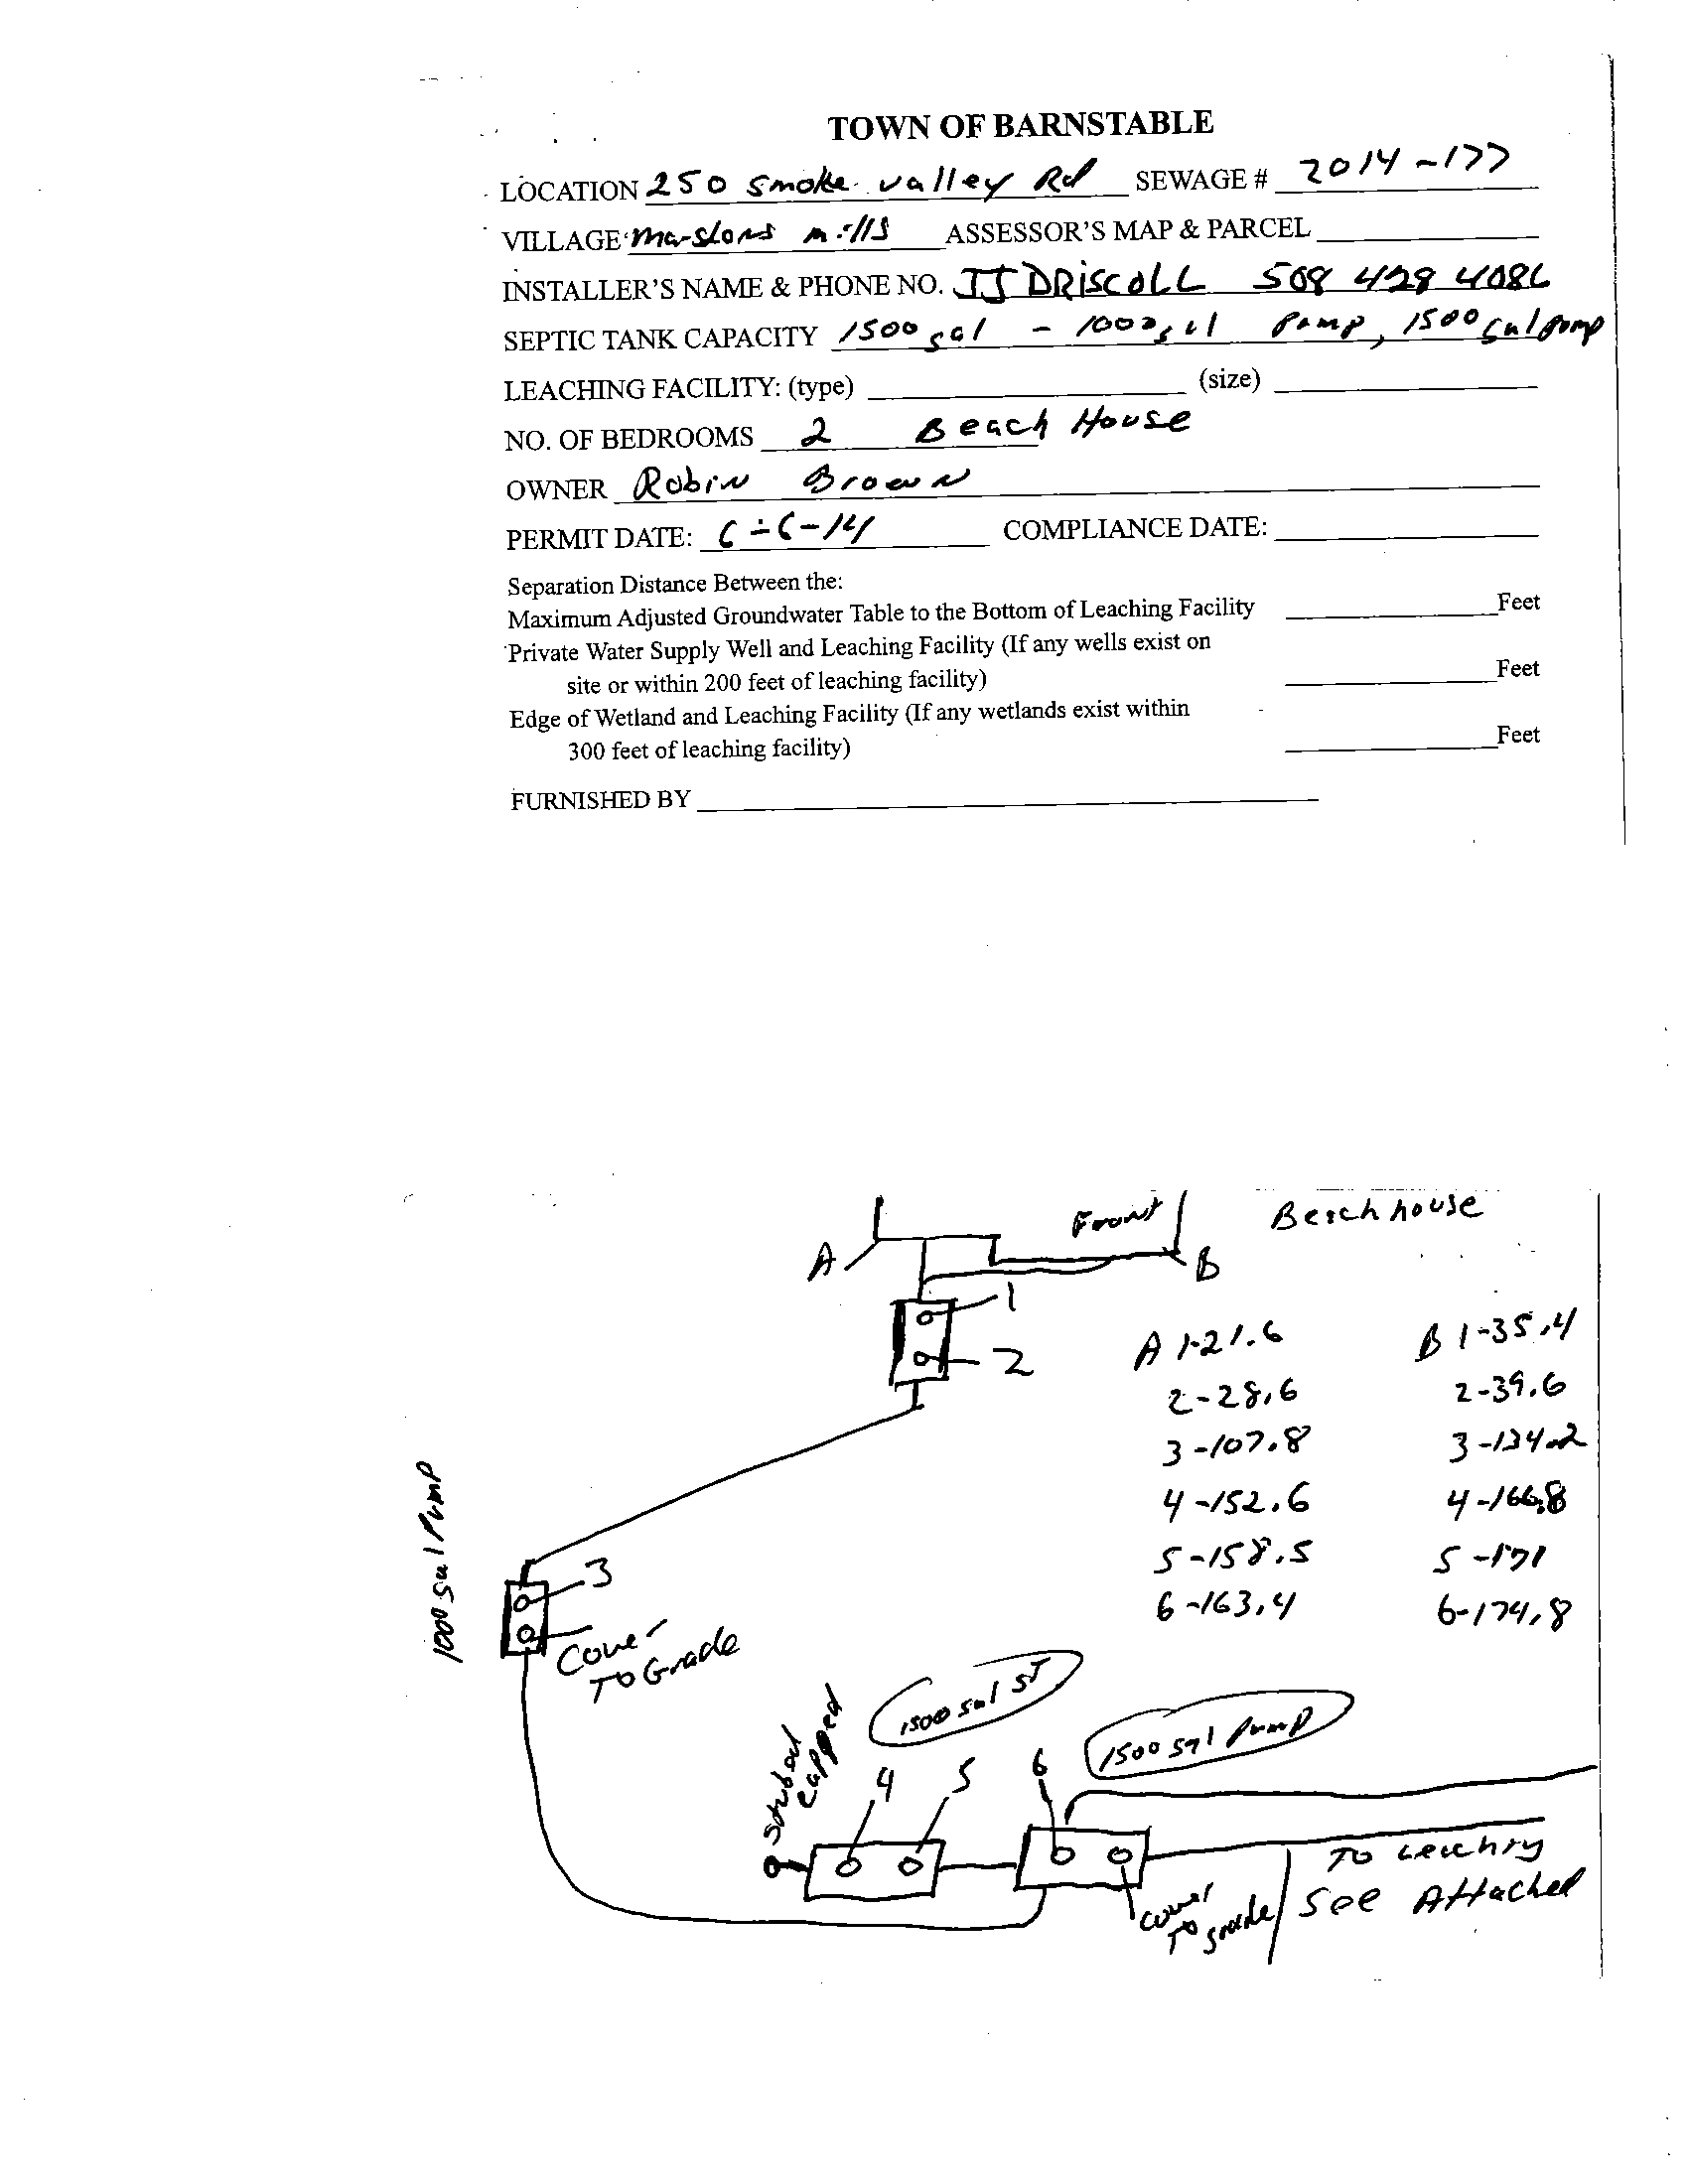 TOWN OF BARNSTABLE
LOCATION 250 Smoke valley Rd SEWAGE # 2014-177
VILLAGE Marstons mills ASSESSOR'S MAP & PARCEL
INSTALLER'S NAME & PHONE NO. JJ DRiscoLL 508 428 4086
SEPTIC TANK CAPACITY 1500 gal - 1000 gal Pump, 1500 gal pump
LEACHING FACILITY: (type) (size)
NO. OF BEDROOMS 2 Beach House
OWNER Robin Brown
PERMIT DATE: 6-6-14 COMPLIANCE DATE:
Separation Distance Between the:
Maximum Adjusted Groundwater Table to the Bottom of Leaching Facility Feet
Private Water Supply Well and Leaching Facility (If any wells exist on
site or within 200 feet of leaching facility) Feet
Edge of Wetland and Leaching Facility (If any wetlands exist within
300 feet of leaching facility) Feet
FURNISHED BY
Front Beachhouse
A B
1
2
A 1-21.6 B 1-35.4
2-28.6 2-39.6
3-107.8 3-134.2
4-152.6 4-166.8
5-158.5 5-171
6-163.4 6-174.8
1000 gal Pump
3
Cover
To Grade
1500 gal ST
1500 gal Pump
capped
4 5 6
To Leaching
See Attached
cover
To grade